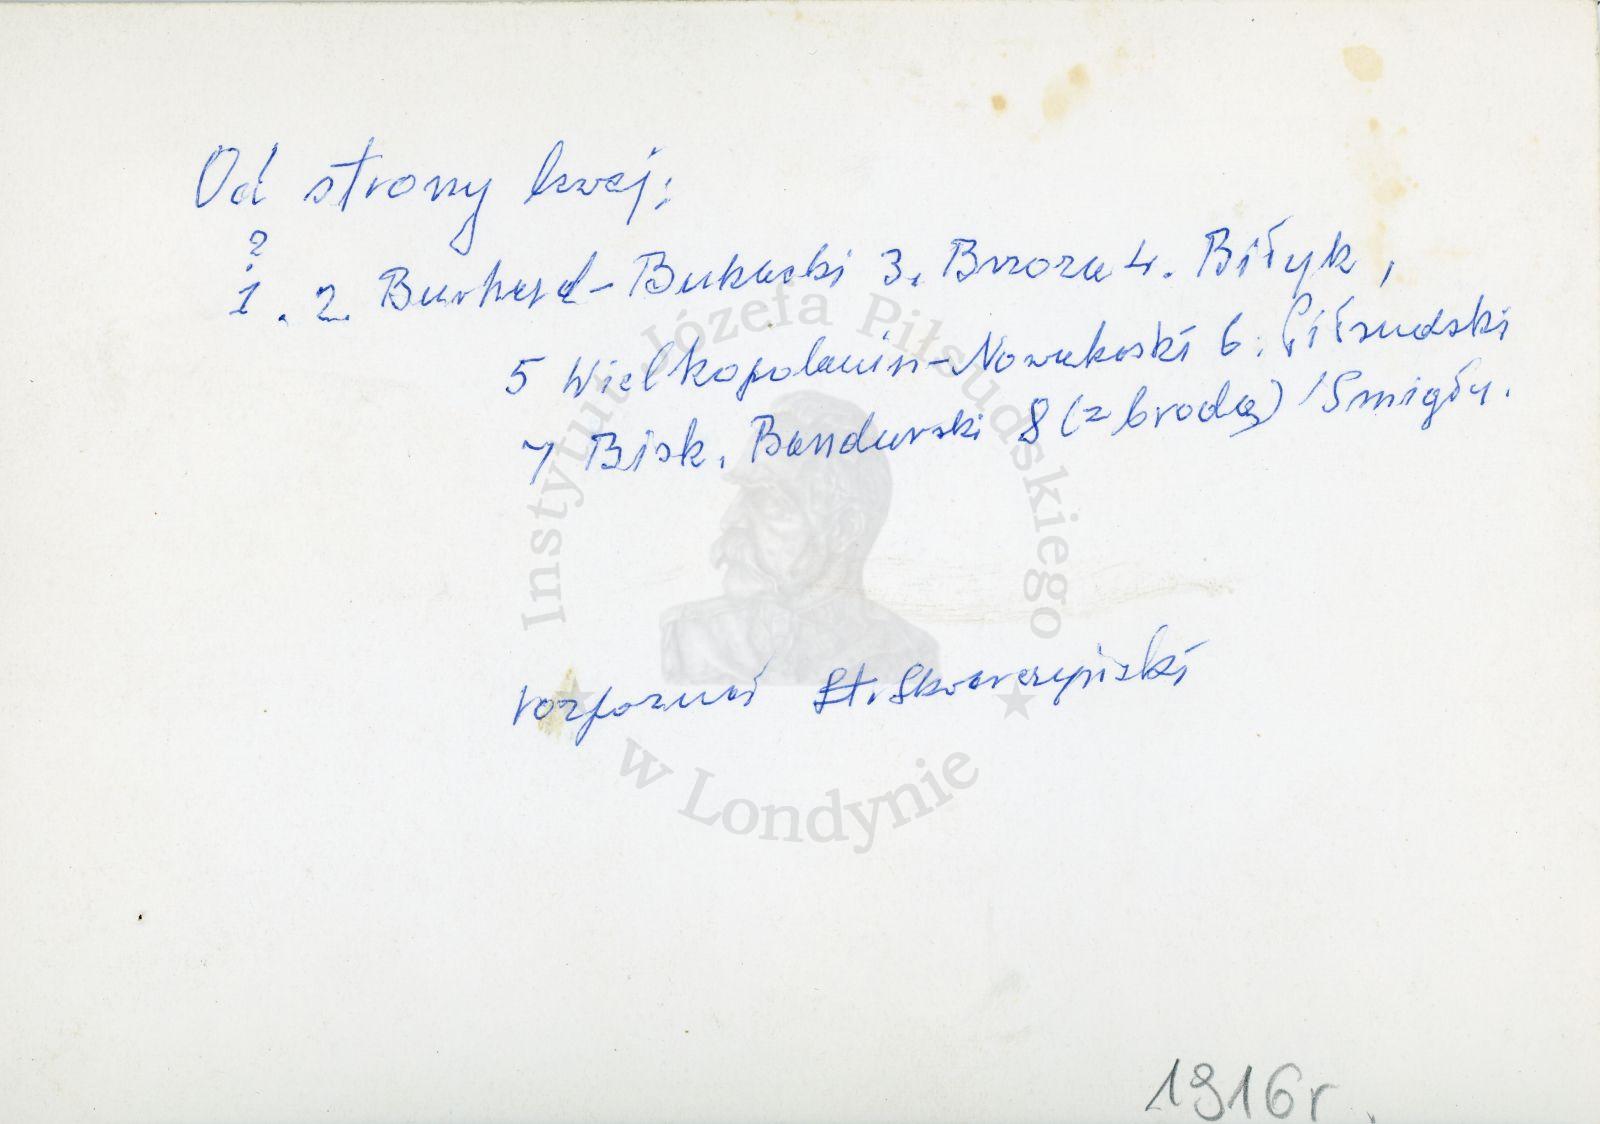 Od strony lewej:
?
1. 2. Burhard-Bukacki 3. Brzoza 4. Biłyk,
5 Wielkopolanin-Nowakoski 6. Piłsudski
7 Bisk. Bandurski 8 (z brodą) Śmigły.
rozpoznał St. Skwarczyński
1916 r.
Instytut Józefa Piłsudskiego
w Londynie